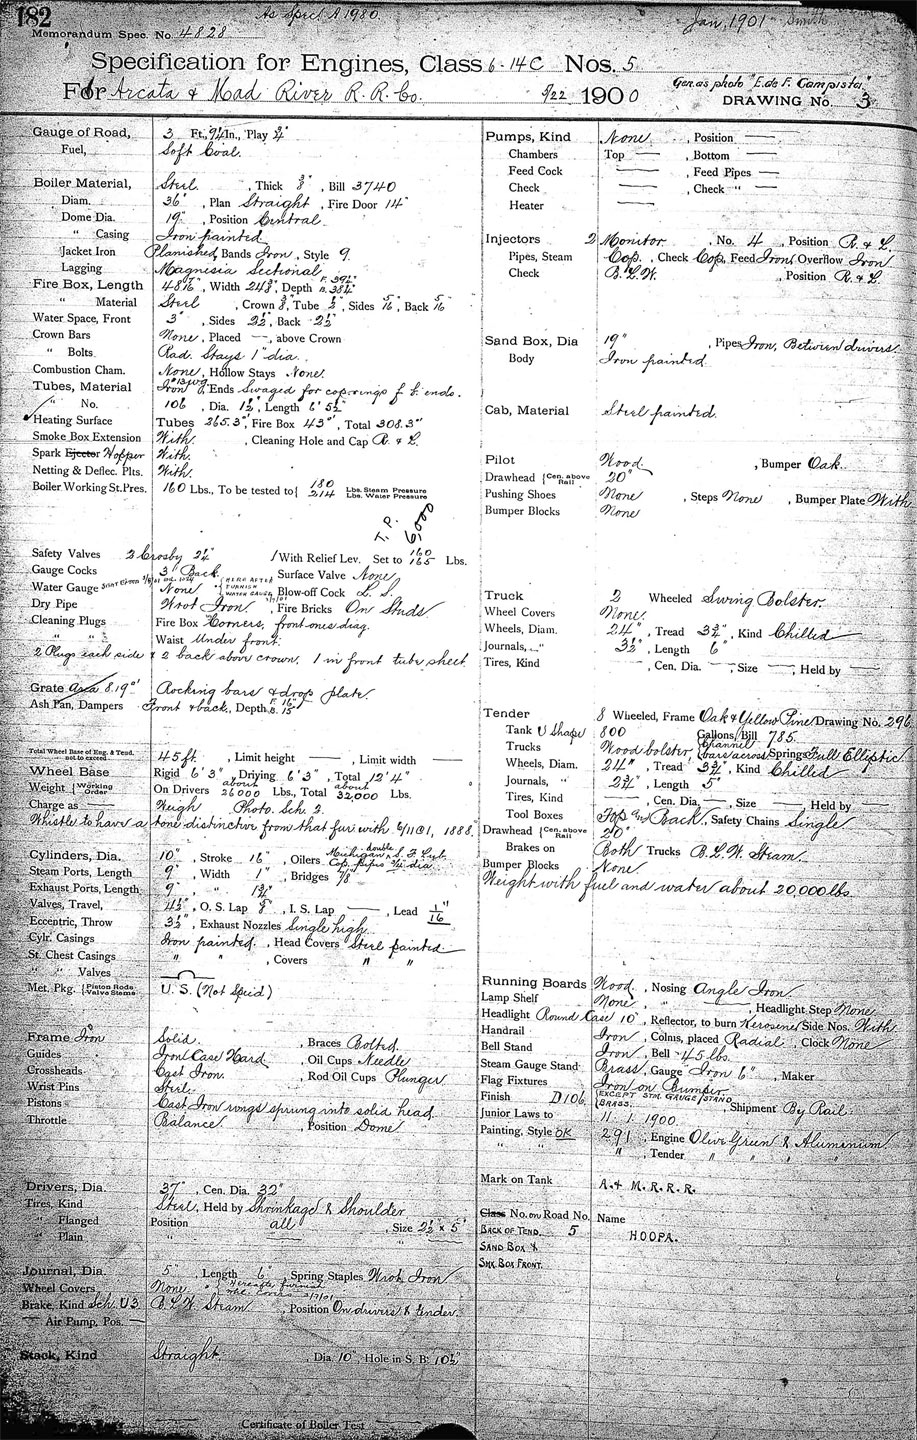 182
As Spec. A 1980
Jan, 1901 Smith
Memorandum Spec. No. 4828
Specification for Engines, Class 6-14C Nos. 5
Gen. as photo "E. de F. Campista"
For Arcata & Mad River R. R. Co. 9/22 1900
DRAWING No. 3
Gauge of Road, 3 Ft., 9¼ In., Play ¾"
Fuel, Soft Coal.
Boiler Material, Steel , Thick ⅜" , Bill 3740
Diam. 36" , Plan Straight , Fire Door 14"
Dome Dia. 19" , Position Central
" Casing Iron painted
Jacket Iron Planished, Bands Iron , Style 9
Lagging Magnesia Sectional
Fire Box, Length , Width , Depth
" Material Steel , Crown ⅜", Tube ½", Sides 5/16", Back 5/16"
Water Space, Front 3" , Sides 2½", Back 2½"
Crown Bars None , Placed — , above Crown
" Bolts Rad. Stays 1" dia.
Combustion Cham. None , Hollow Stays None
Tubes, Material Iron #13 wg, Ends Swaged for cop. rings f. b. ends.
" No. 106 , Dia. 1½", Length 6' 5½"
Heating Surface Tubes 265.3 ▫', Fire Box 43 ▫', Total 308.3 ▫'
Smoke Box Extension With , Cleaning Hole and Cap R. & L.
Spark Ejector Hopper With
Netting & Deflec. Plts. With
Boiler Working St. Pres. 160 Lbs., To be tested to { 180 Lbs. Steam Pressure
214 Lbs. Water Pressure
T. P. 6,000
Safety Valves 2 Crosby 2¼" 1 With Relief Lev. Set to 160
165 Lbs.
Gauge Cocks 3 Back Surface Valve None
Water Gauge None { HERE AFTER FURNISH WATER GAUGE Blow-off Cock L. S.
Dry Pipe Wrot Iron , Fire Bricks On Studs
Cleaning Plugs Fire Box Corners, front ones diag.
" " Waist Under front.
2 Plugs each side & 2 back above crown. 1 in front tube sheet
Grate area 8.19 ▫' Rocking bars & drop plate
Ash Pan, Dampers Front & back, Depth F. 16" B. 15"
Total Wheel Base of Eng. & Tend. not to exceed 45 ft. , Limit height — , Limit width —
Wheel Base Rigid 6' 3" , Driving 6' 3" , Total 12' 4"
Weight { Working Order On Drivers about 26000 Lbs., Total about 32,000 Lbs.
Charge as — Weigh Photo. Sch. 2
Whistle to have a tone distinctive from that fur. with. 6/11 @ 1, 1888.
Cylinders, Dia. 10" , Stroke 16" , Oilers Michigan double S. F. Lub.
Cop. pipes ¾" dia.
Steam Ports, Length 9" , Width 1" , Bridges 7/8"
Exhaust Ports, Length 9" , " 1¾"
Valves, Travel, 4½", O. S. Lap ⅝", I. S. Lap — , Lead 1/16"
Eccentric, Throw 3½" , Exhaust Nozzles Single high
Cylr. Casings Iron painted , Head Covers Steel painted
St. Chest Casings " " , Covers " "
" " Valves
Met. Pkg. { Piston Rods
Valve Stems U. S. (Not Spcid)
Frame Iron Solid , Braces Bolted
Guides Iron Case Hard , Oil Cups Needle
Crossheads Cast Iron , Rod Oil Cups Plunger
Wrist Pins Steel
Pistons Cast Iron rings sprung into solid head
Throttle Balance , Position Dome
Drivers, Dia. 37" , Cen. Dia. 32"
Tires, Kind Steel, Held by Shrinkage & Shoulder
" Flanged Position all , Size 2½ x 5"
" Plain " — " —
Journal, Dia. 5" , Length 6" , Spring Staples Wrot Iron
Wheel Covers None " Hereafter furnish whl. covers 3/7/01
Brake, Kind Sch. U3 B. L. W. Steam , Position On drivers & tender
— Air Pump, Pos. —
Stack, Kind Straight , Dia. 10" , Hole in S. B. 10½"
Certificate of Boiler Test
Pumps, Kind None , Position —
Chambers Top — , Bottom —
Feed Cock — , Feed Pipes —
Check — , Check " —
Heater —
Injectors 2 Monitor , No. 4 , Position R. & L.
Pipes, Steam Cop. , Check Cop, Feed Iron Overflow Iron
Check B. L. W. , Position R. & L.
Sand Box, Dia 19" , Pipes Iron, Between drivers
Body Iron painted
Cab, Material Steel painted
Pilot Wood , Bumper Oak
Drawhead { Cen. above Rail 20"
Pushing Shoes None , Steps None , Bumper Plate With
Bumper Blocks None
Truck 2 Wheeled Swing Bolster
Wheel Covers None
Wheels, Diam. 24" , Tread 3¾" , Kind Chilled
Journals, " 3½" , Length 6"
Tires, Kind — , Cen. Dia. — , Size — , Held by —
Tender 8 Wheeled, Frame Oak & Yellow Pine Drawing No. 296
Tank U Shape 800 Gallons, Bill 785
Trucks Wood bolster, Channel bars across Springs Full Elliptic
Wheels, Diam. 24" , Tread 3¾" , Kind Chilled
Journals, " 2¾" , Length 5"
Tires, Kind — , Cen. Dia. — , Size — , Held by —
Tool Boxes Top on Back , Safety Chains Single
Drawhead { Cen. above Rail 20"
Brakes on Both Trucks B. L. W. Steam
Bumper Blocks None
Weight with fuel and water about 20,000 lbs.
Running Boards Wood , Nosing Angle Iron
Lamp Shelf None , " — , Headlight Step None
Headlight Round Case 10" , Reflector, to burn Kerosine Side Nos. With
Handrail Iron , Colmns, placed Radial , Clock None
Bell Stand Iron , Bell 45 lbs.
Steam Gauge Stand Brass , Gauge Iron 6" , Maker
Flag Fixtures Iron on Bumper
Finish D106. { EXCEPT STM. GAUGE STAND BRASS. Shipment By Rail
Junior Laws to 11. 1. 1900
Painting, Style OK 291 , Engine Olive Green & Aluminium
" " " , Tender " " " "
Mark on Tank A. & M. R. R. R.
Class No. on Road No. Name
BACK OF TEND. 5 HOOPA.
SAND BOX &
SMK BOX FRONT.